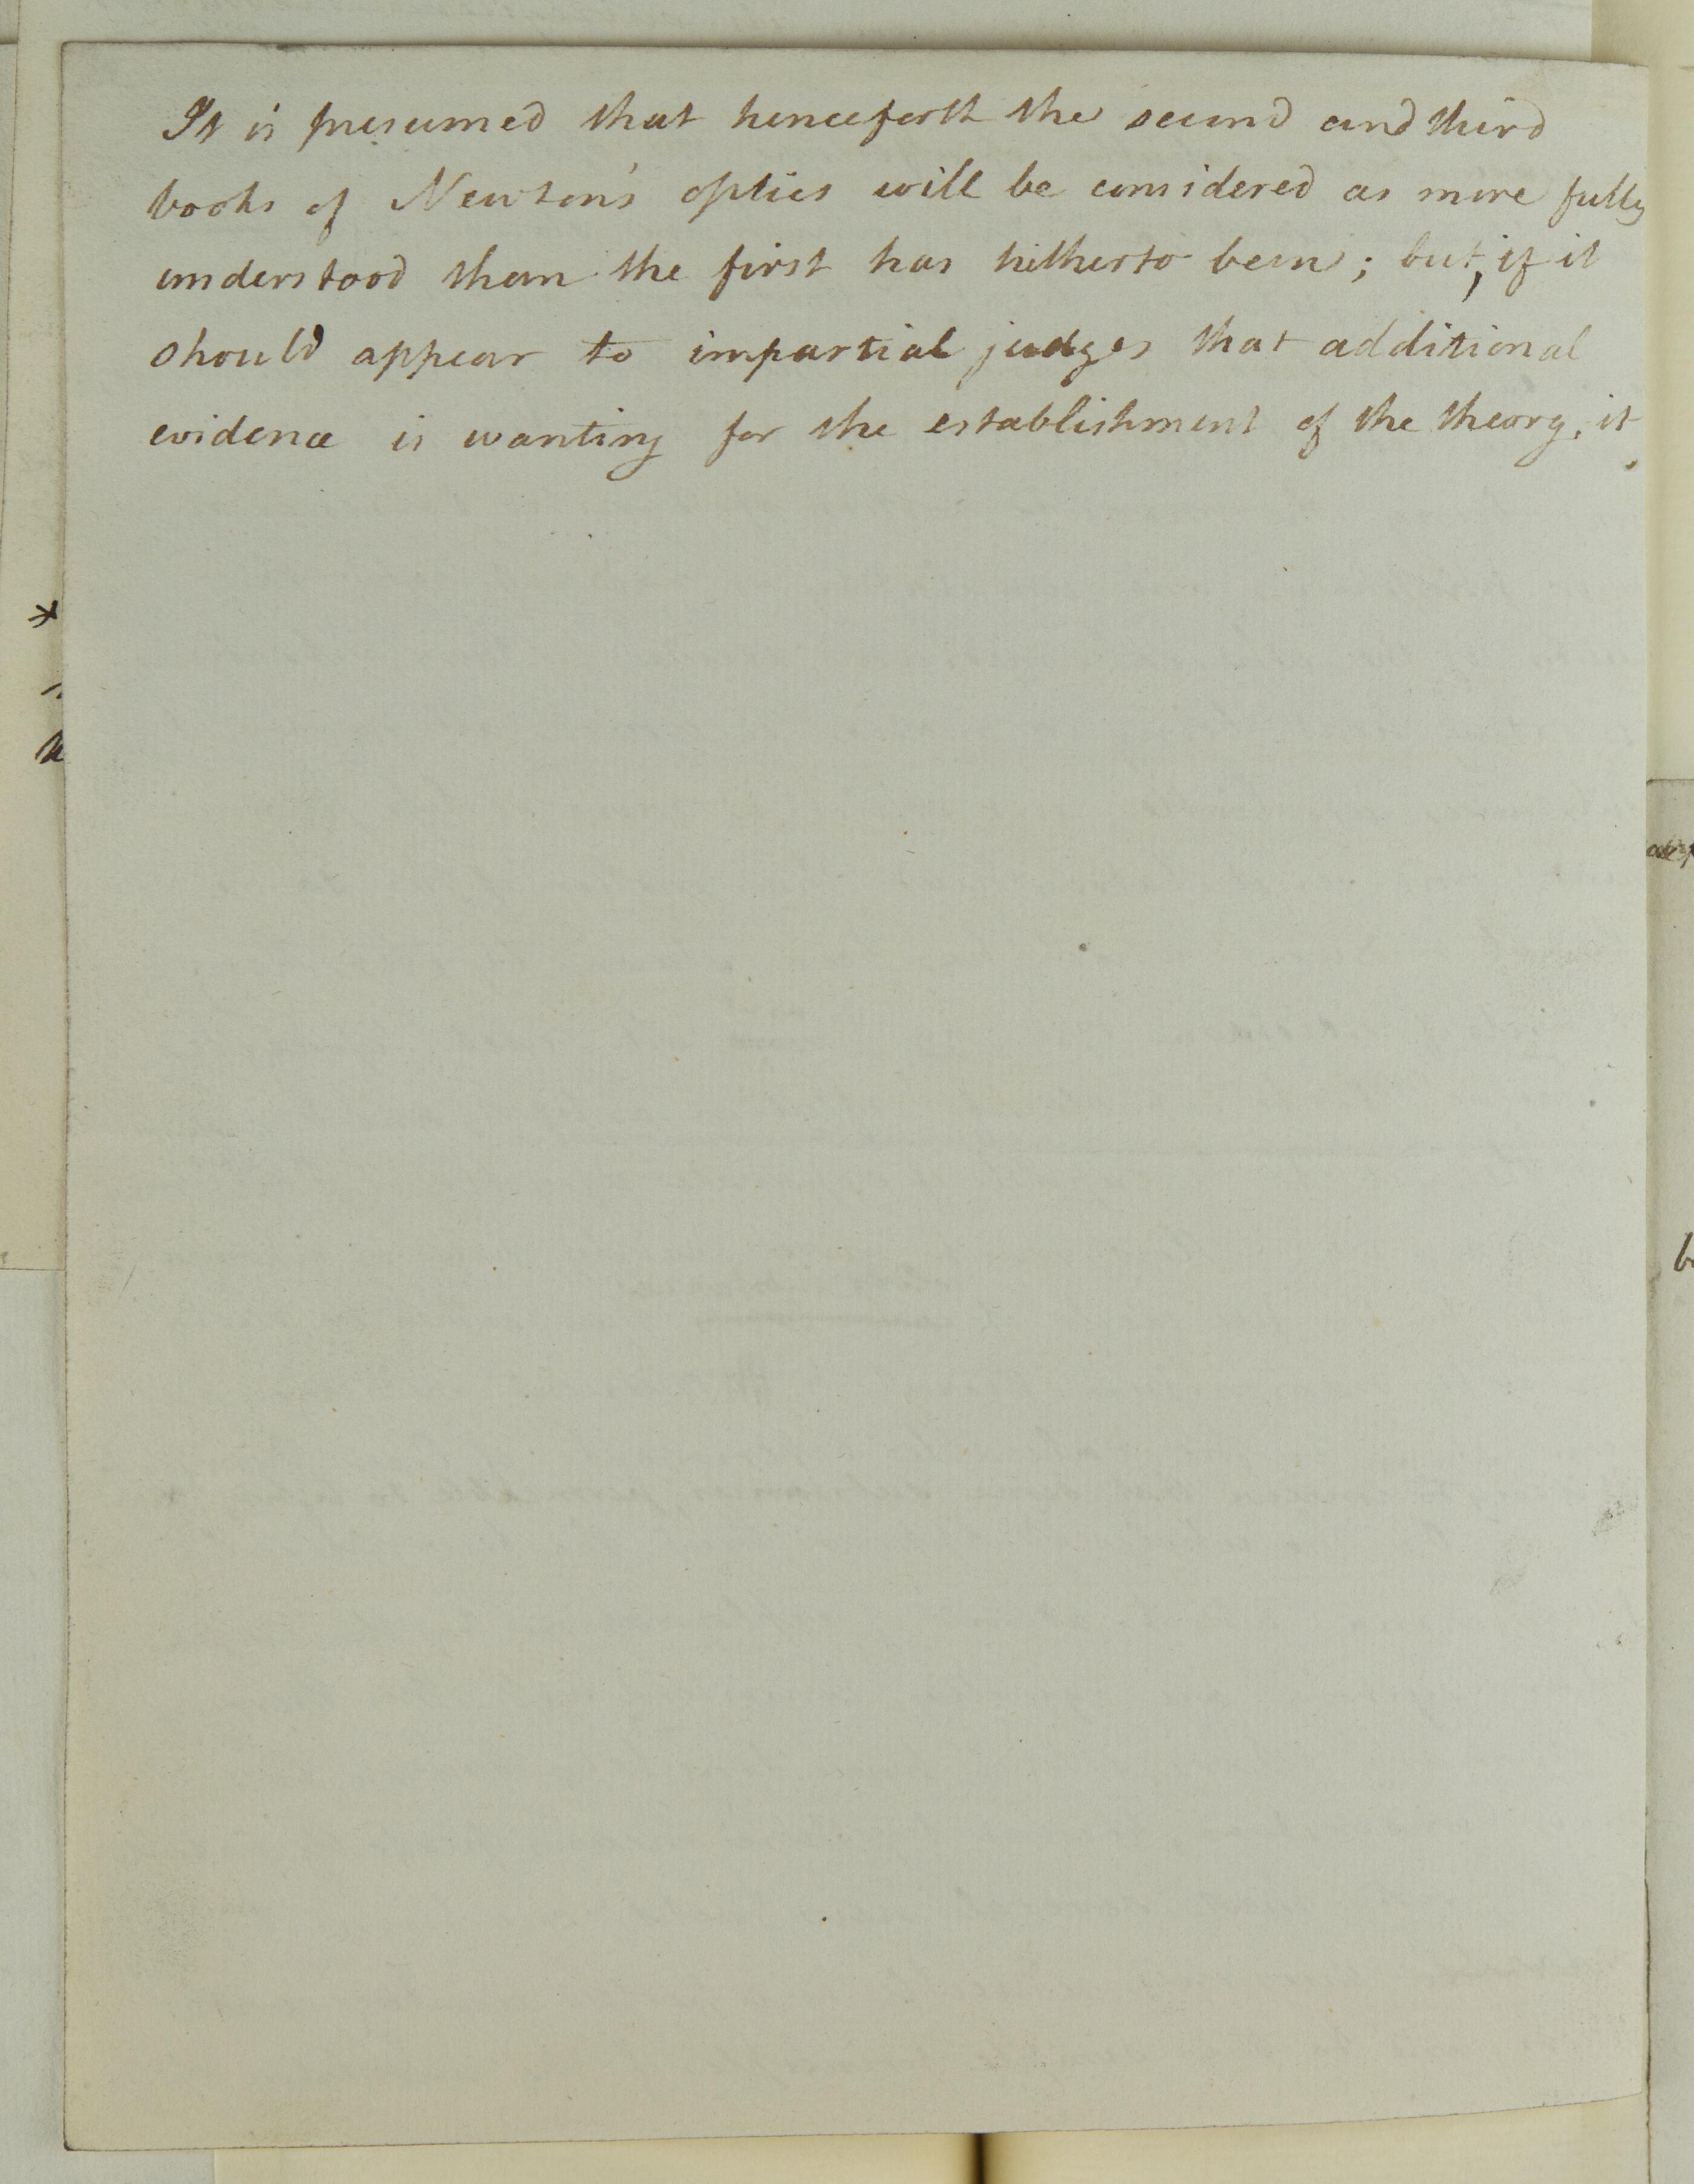 It is presumed that henceforth the second and third
books of Newton's optics will be considered as more fully
understood than the first has hitherto been; but, if it
should appear to impartial judges that additional
evidence is wanting for the establishment of the theory, it